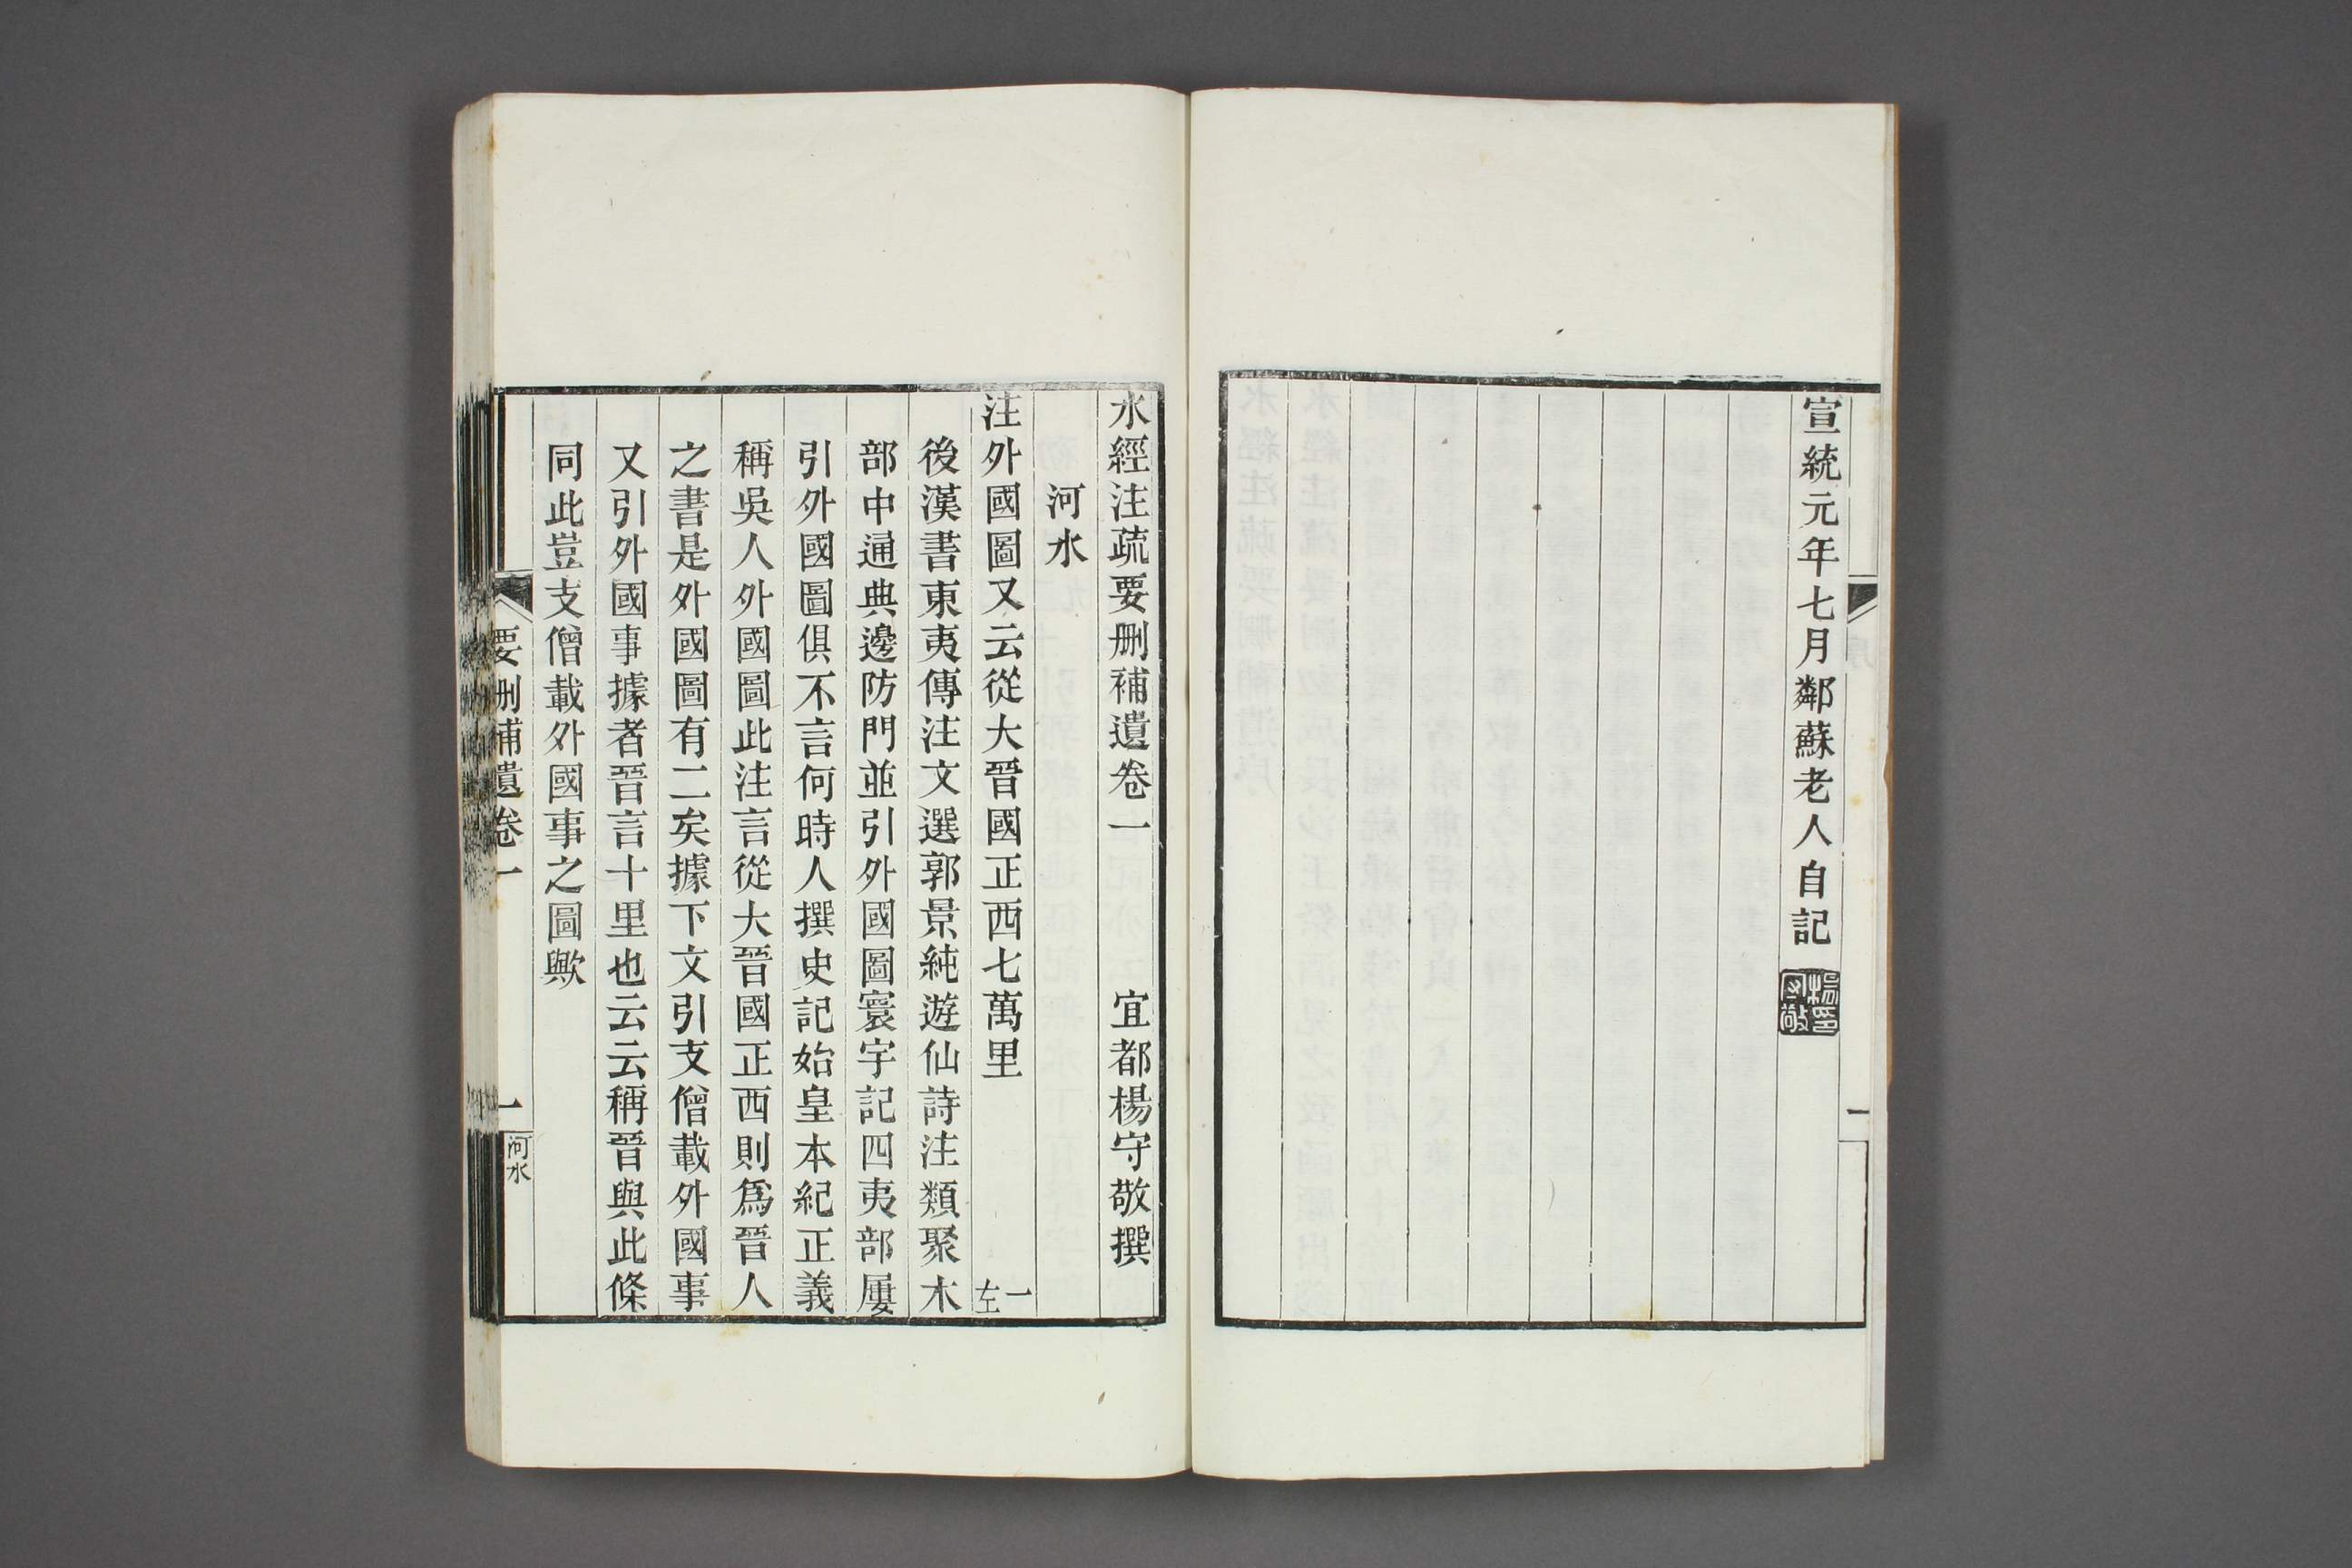 宣統元年七月鄰蘇老人自記
楊守敬印
序
一
水經注疏要刪補遺卷一　宜都楊守敬撰
河水
注外國圖又云從大晉國正西七萬里　一左
後漢書東夷傳注文選郭景純遊仙詩注類聚木
部中通典邊防門並引外國圖寰宇記四夷部屢
引外國圖俱不言何時人撰史記始皇本紀正義
稱吳人外國圖此注言從大晉國正西則爲晉人
之書是外國圖有二矣據下文引支僧載外國事
又引外國事據者晉言十里也云云稱晉與此條
同此豈支僧載外國事之圖歟
要刪補遺卷一
一
河水